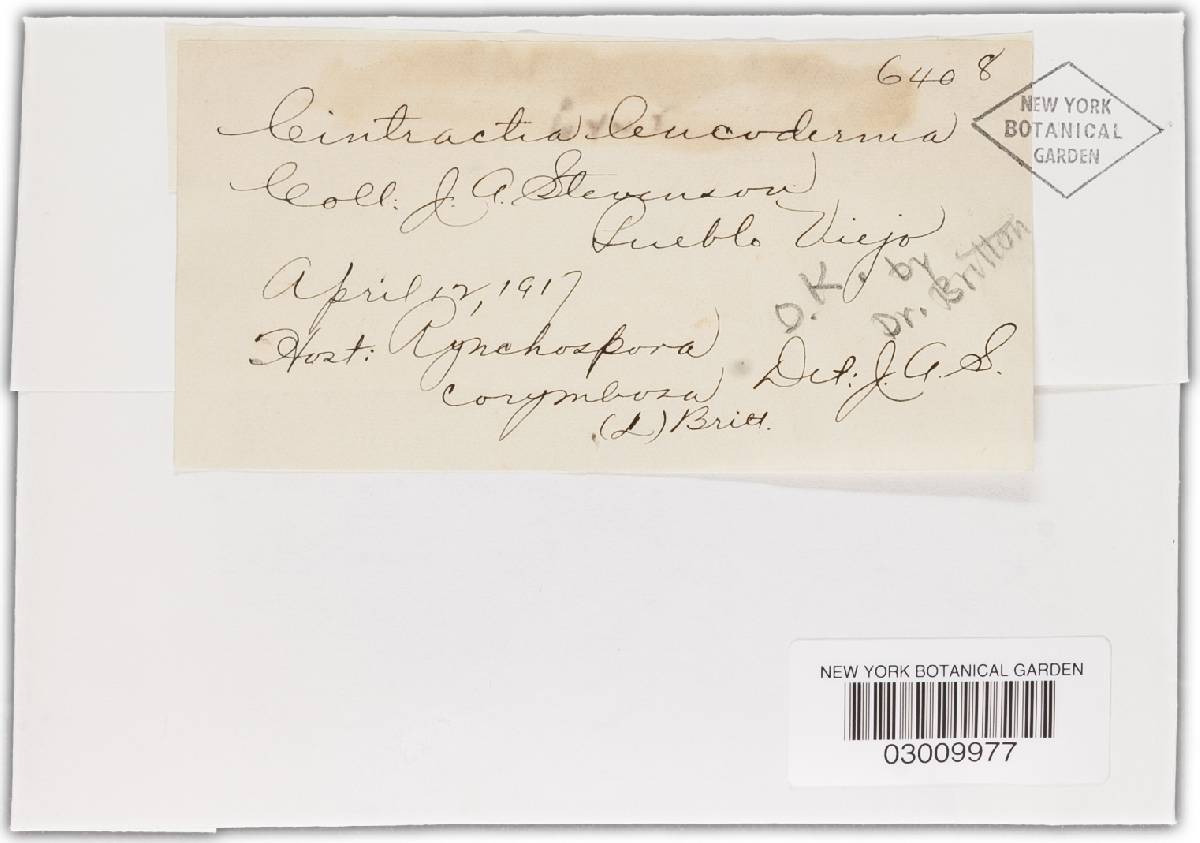 6408
Cintractia leucoderma
NEW YORK
BOTANICAL
GARDEN
Coll: J. A. Stevenson
Pueblo Viejo
April 12, 1917
O.K. by
Dr. Britton
Host: Rynchospora
corymbosa
(L) Britt.
Det: J. A. S.
NEW YORK BOTANICAL GARDEN
03009977